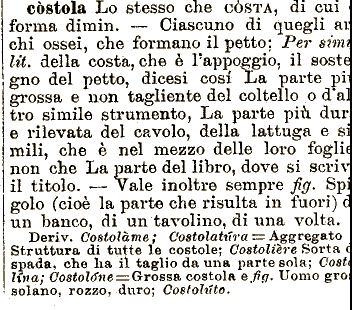 còstola Lo stesso che CÒSTA, di cui
forma dimin. — Ciascuno di quegli
chi ossei, che formano il petto: Per simi
lit. della costa, che è l'appoggio, il soste
gno del petto, dicesi cosí La parte pi
grossa e non tagliente del coltello o d'al
tro simile strumento, La parte più dur
e rilevata del cavolo, della lattuga e si
mili, che è nel mezzo delle loro foglie
non che La parte del libro, dove si scriv
il titolo. — Vale inoltre sempre fig. Spi
golo (cioè la parte che risulta in fuori) d
un banco, di un tavolino, di una volta.
Deriv. Costolàme; Costolatúra=Aggregato
Struttura di tutte le costole; Costolière Sorta d
spada, che ha il taglio da una parte sola; Costo
lína; Costolóne=Grossa costola e fig. Uomo gros
solano, rozzo, duro; Costolúto.